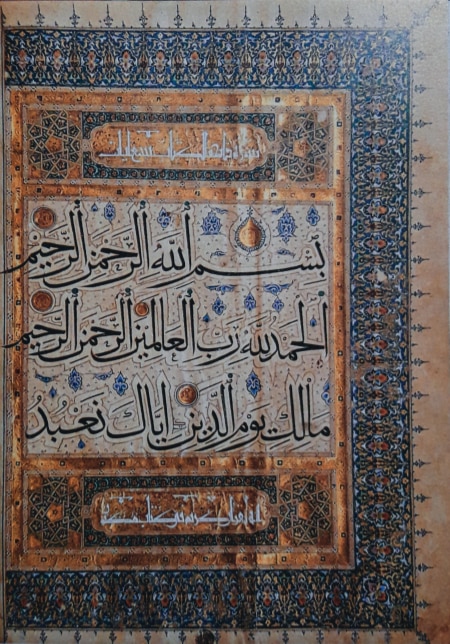 سورة فاتحة الكتاب
بسم الله الرحمن الرحيم
الحمد لله رب العالمين الرحمن الرحيم
مالك يوم الدين إياك نعبد